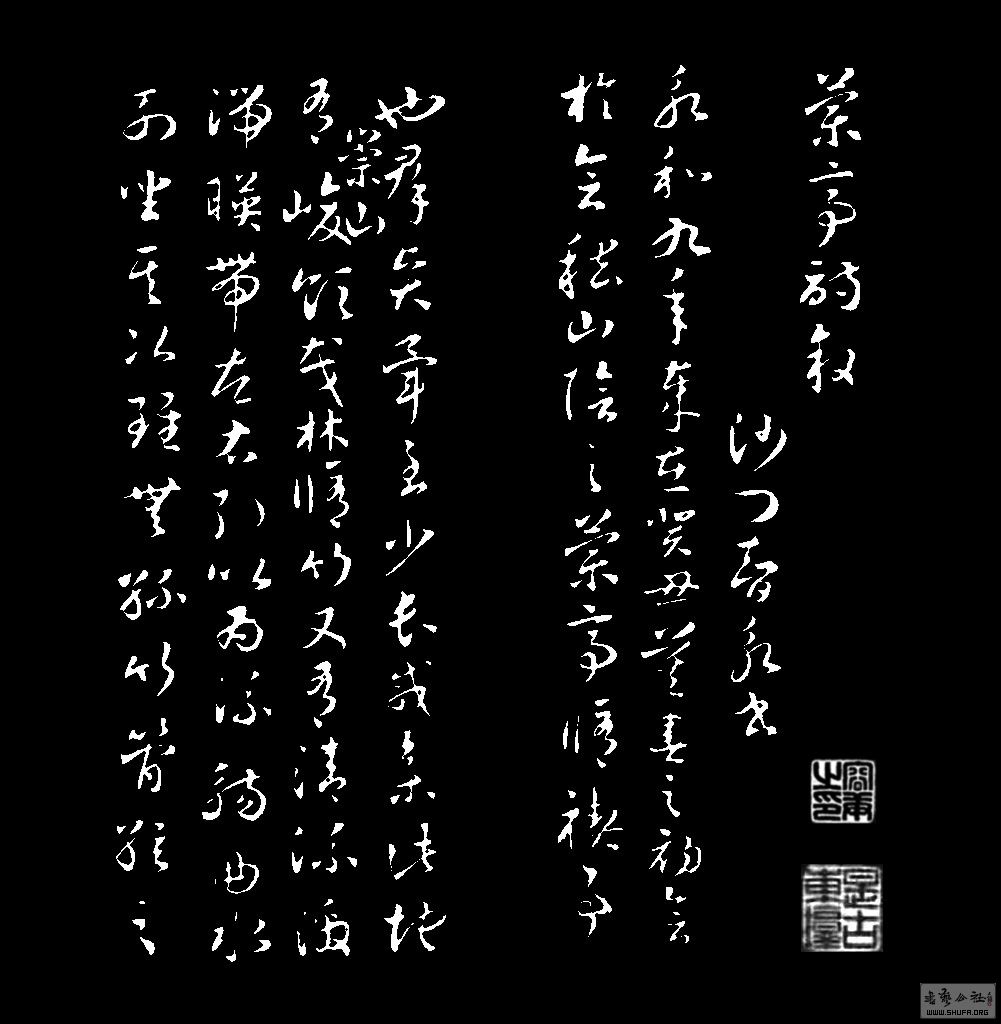 蘭亭詩叙
沙門智永書
永和九年歲在癸丑暮春之初會
於會稽山陰之蘭亭脩禊事
也群賢畢至少長咸集此地
有崇山峻領茂林脩竹又有清流激
湍暎帶左右引以為流觴曲水
列坐其次雖無絲竹管絃之
WWW.SHUFA.ORG